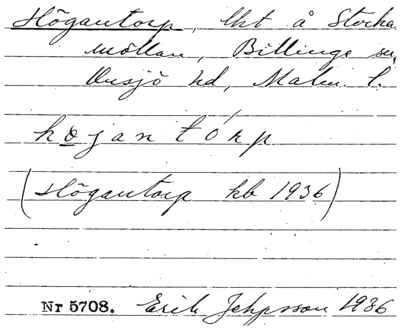 Högantorp, lht å Stocka
möllan, Billinge sn,
Onsjö hd, Malm. l.
hojantórp
(Högantorp kb 1936)
Nr 5708. Erik Jeppsson 1936